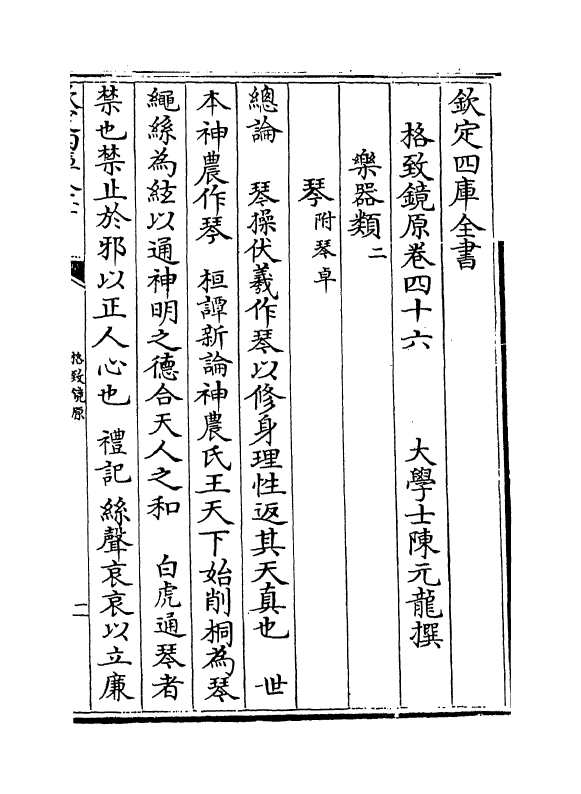 欽定四庫全書
格致鏡原卷四十六　大學士陳元龍撰
樂器類二
琴附琴卓
總論　琴操伏羲作琴以修身理性返其天真也　世
本神農作琴　桓譚新論神農氏王天下始削桐為琴
繩絲為絃以通神明之德合天人之和　白虎通琴者
禁也禁止於邪以正人心也　禮記　絲聲哀哀以立廉
格致鏡原